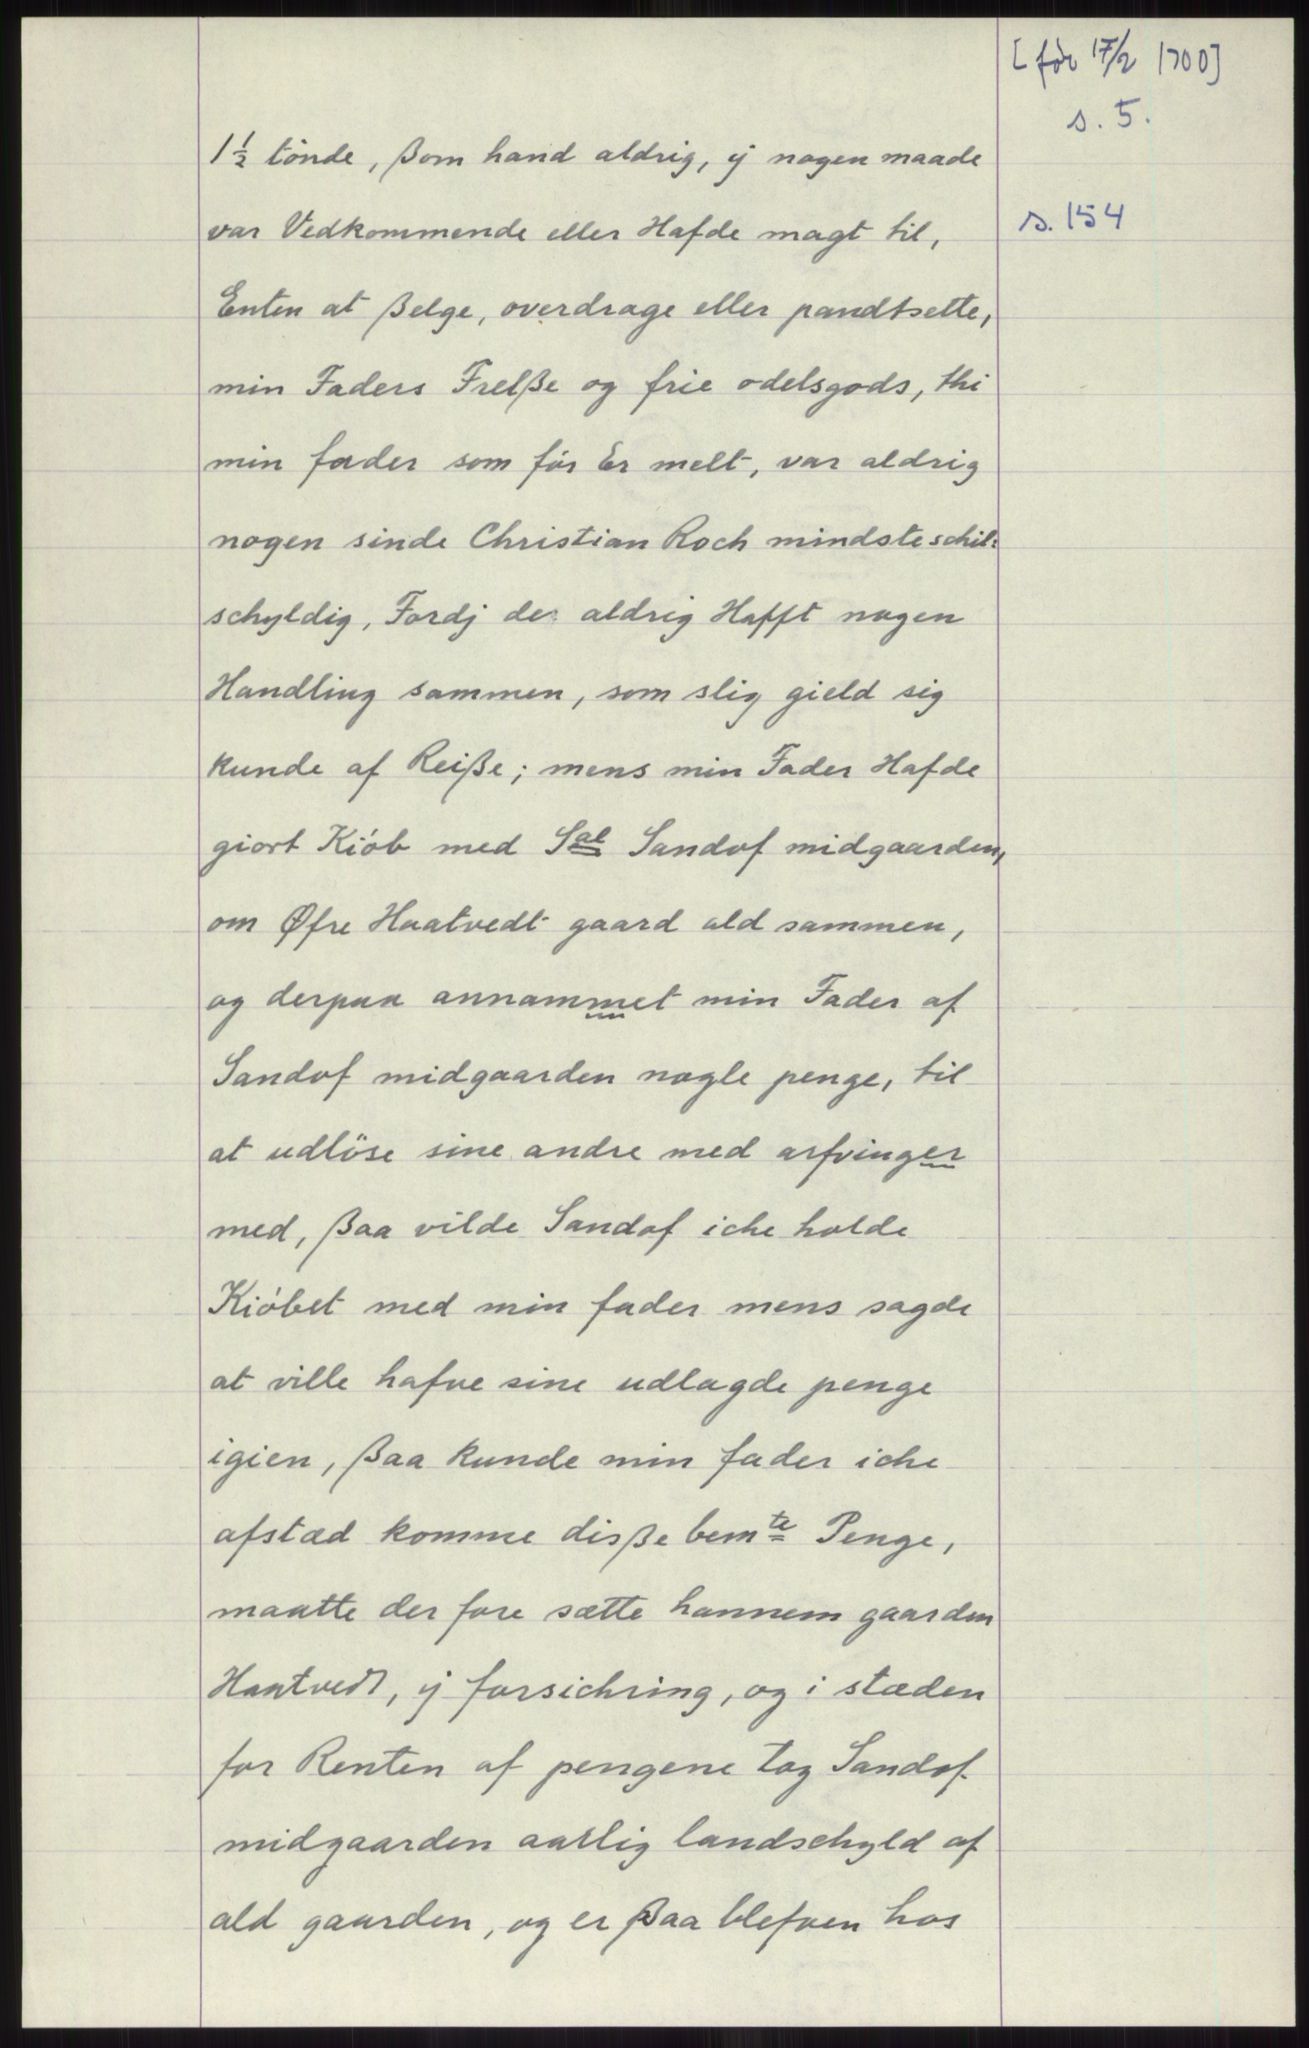 [før 17/2 1700]
s. 5.
s. 154
1½ tönde, ßom hand aldrig, ij nogen maade
var Vedkommende eller Hafde magt til,
Enten at ßelge, overdrage eller pandtsette,
min Faders Frelße og frie odelsgods, thi
min fader som før Er melt, var aldrig
nogen sinde Christian Roch mindste schil:
schyldig, Fordj de aldrig Hafft nogen
Handling sammen, som slig gield sig
kunde af Reiße; mens min Fader Hafde
giort Kiöb med Sal Sandof midgaarden,
om Øfre Haatvedt gaard ald sammen,
og derpaa annammet min Fader af
Sandof midgaarden nogle penge, til
at udlöse sine andre med arfvinger
med, ßaa vilde Sandof iche holde
Kiöbet med min fader mens sagde
at ville hafve sine udlagde penge
igien, ßaa kunde min fader iche
afstæd komme disße bemte Penge,
maatte der fore sætte hannem gaarden
Haatvedt, ij forsichring, og i stæden
for Renten af pengene tog Sandof
midgaarden aarlig landschyld af
ald gaarden, og er ßaa blefven hos